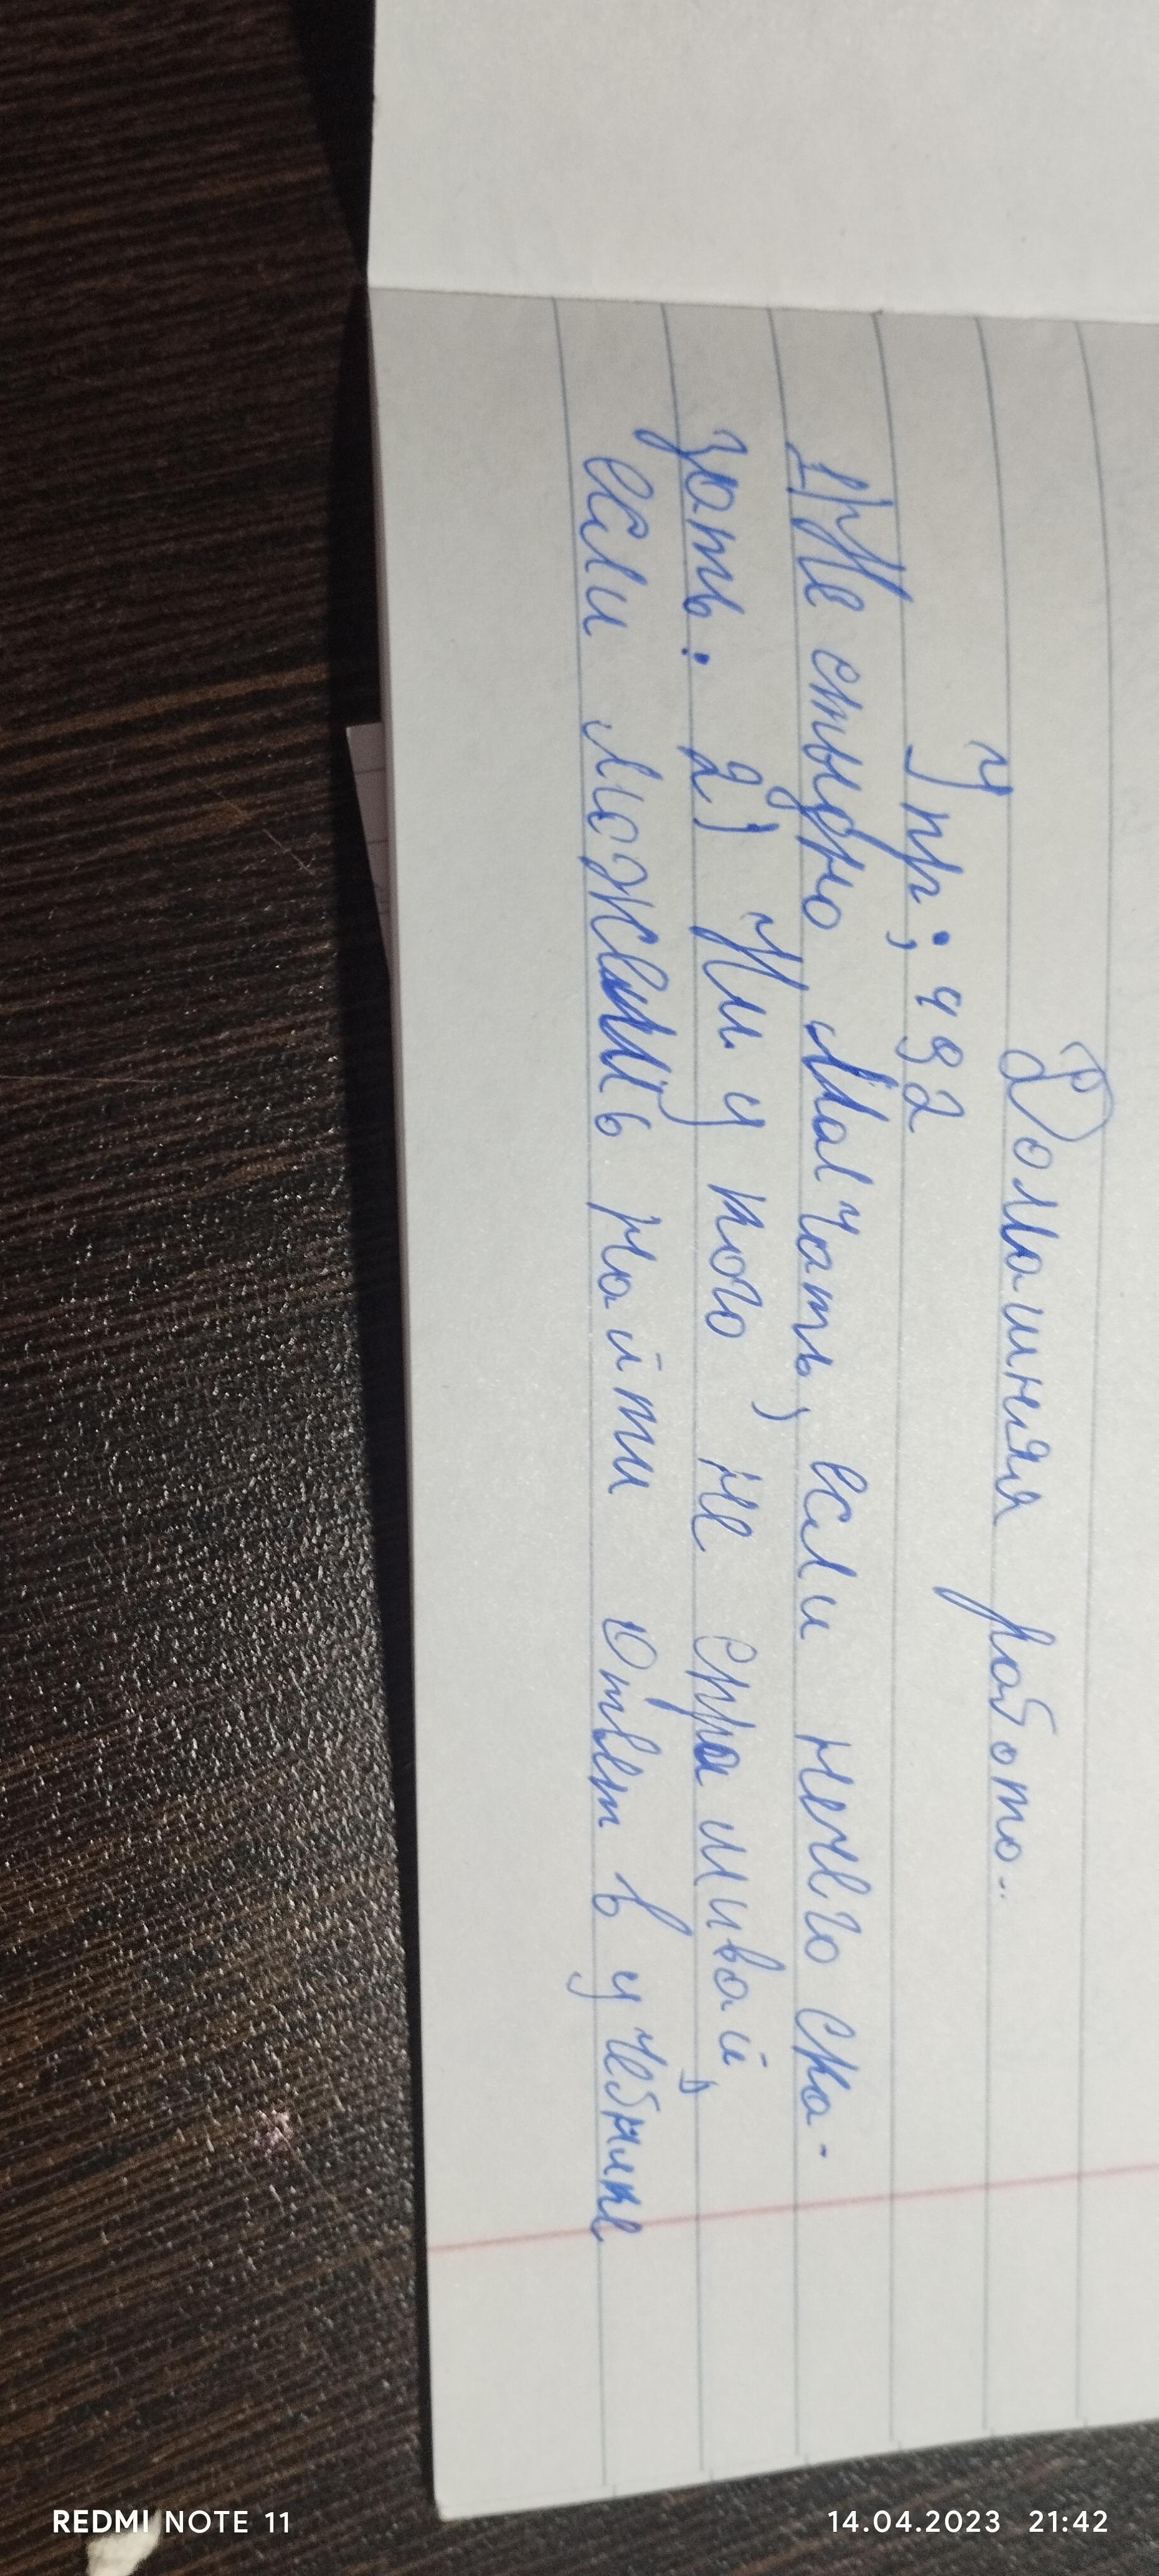 Домашняя работа.
Упр; 492
1) Не стыдно, Малчать, если нечего ска-
зать. 2) Ни у кого не спрашивай,
если можешь найти ответ в учебнике
REDMI NOTE 11
14.04.2023 21:42